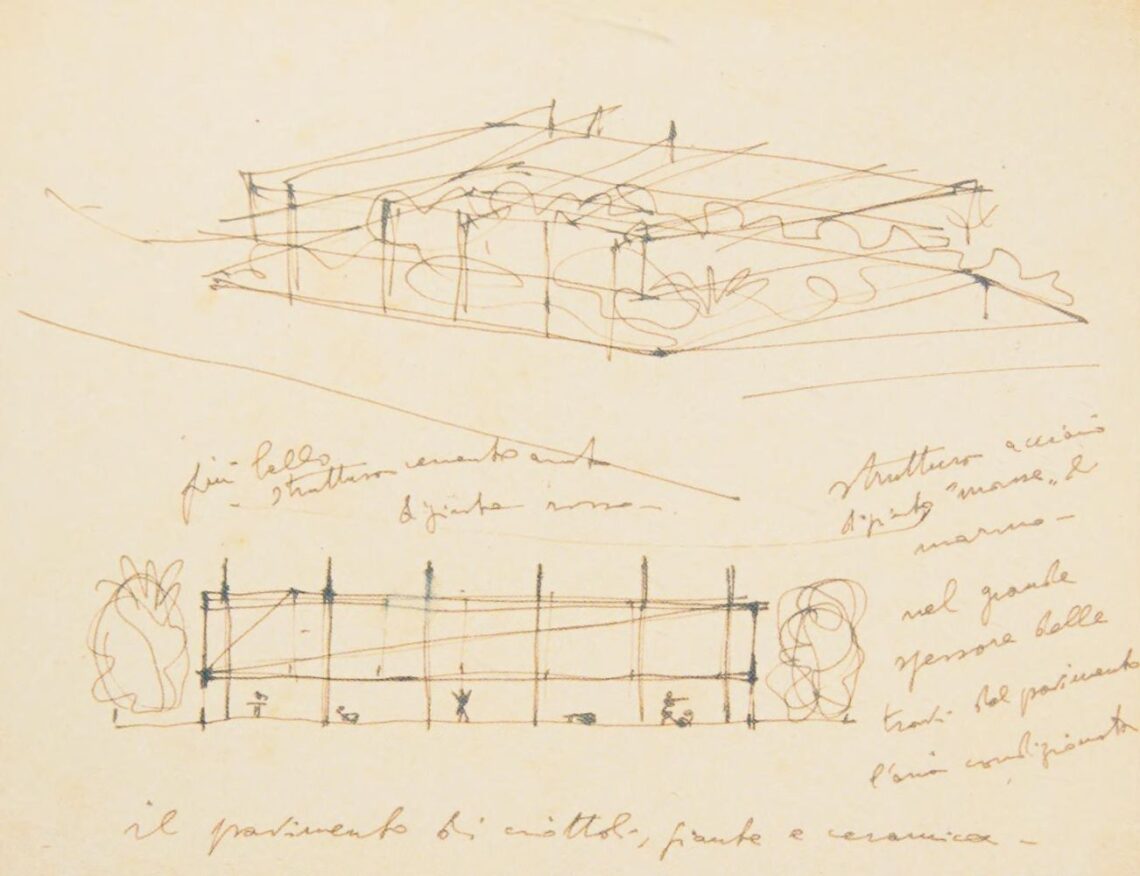 più bello
- struttura cemento armato
dipinta rossa -
struttura acciaio
dipinto " " e
marmo -
nel grande
spessore delle
travi del pavimento
l'aria condizionata
il pavimento di ciottoli, piante e ceramica -